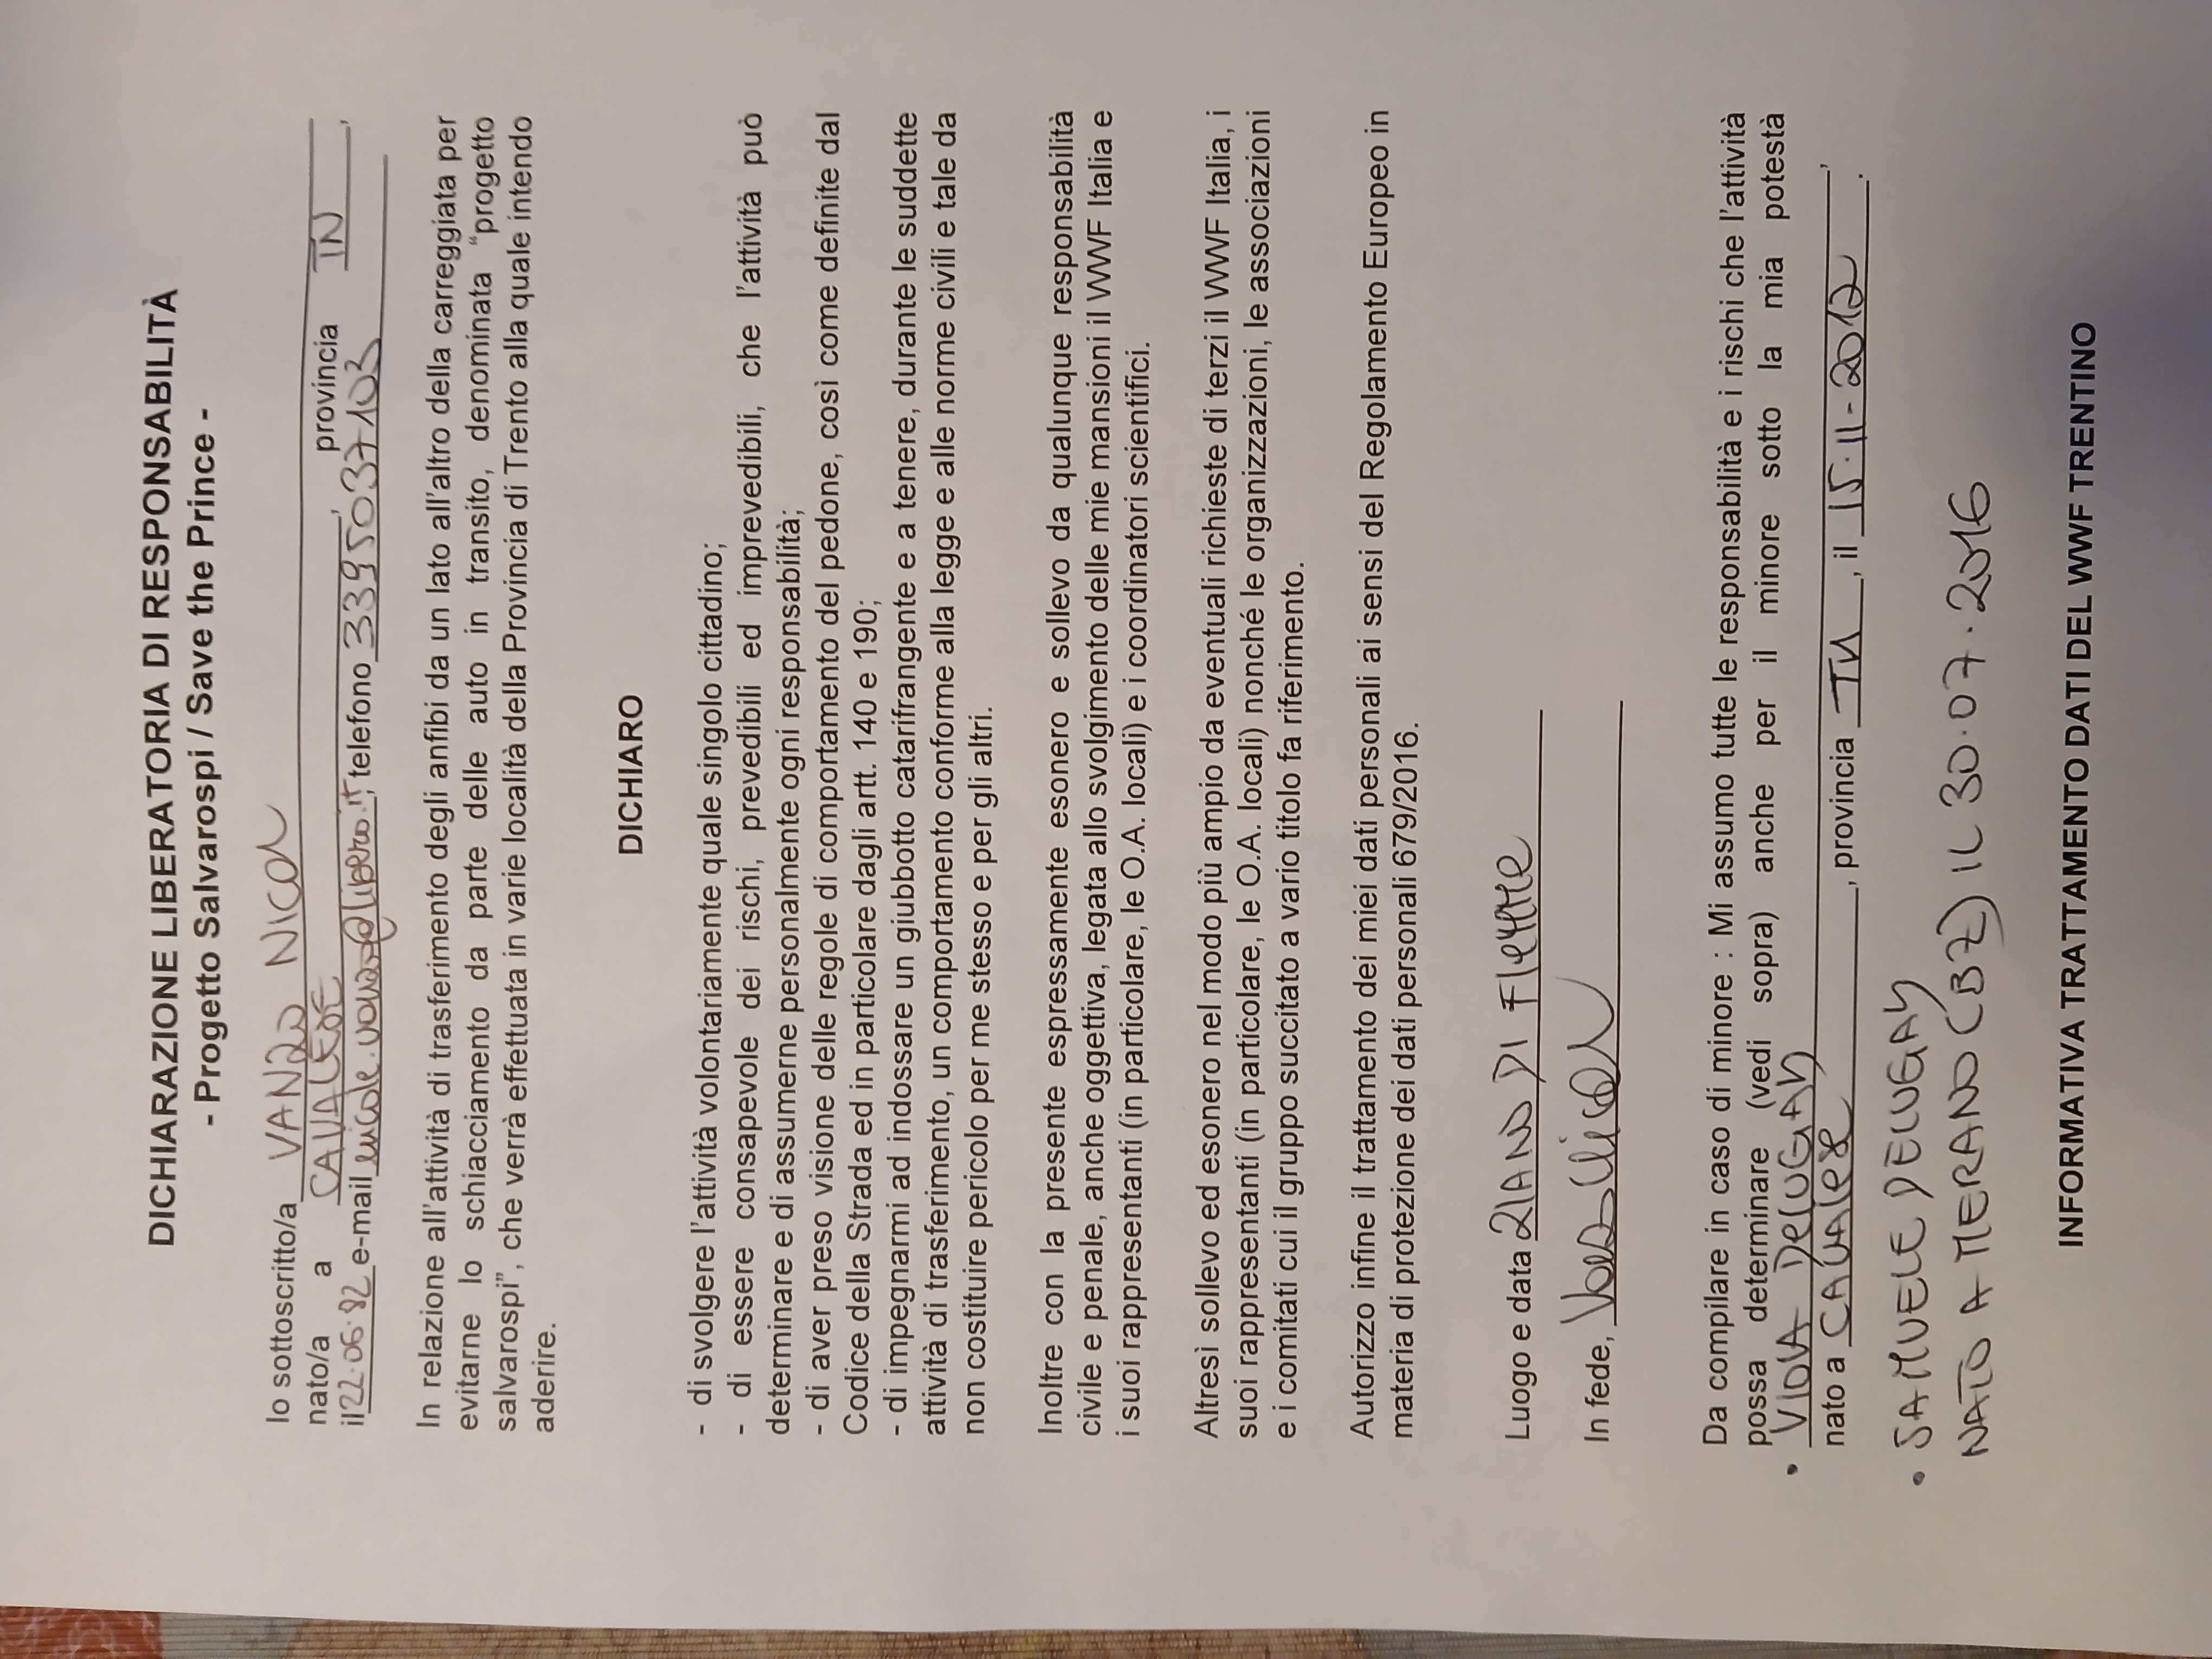 DICHIARAZIONE LIBERATORIA DI RESPONSABILITÀ
- Progetto Salvarospi / Save the Prince -
Io sottoscritto/a VANZO NICOL
nato/a a CAVALESE, provincia TN,
il 22.06.82 e-mail nicole.vanzo@libero.it, telefono 3395037103
In relazione all'attività di trasferimento degli anfibi da un lato all'altro della carreggiata per
evitarne lo schiacciamento da parte delle auto in transito, denominata “progetto
salvarospi”, che verrà effettuata in varie località della Provincia di Trento alla quale intendo
aderire.
DICHIARO
- di svolgere l'attività volontariamente quale singolo cittadino;
- di essere consapevole dei rischi, prevedibili ed imprevedibili, che l'attività può
determinare e di assumerne personalmente ogni responsabilità;
- di aver preso visione delle regole di comportamento del pedone, così come definite dal
Codice della Strada ed in particolare dagli artt. 140 e 190;
- di impegnarmi ad indossare un giubbotto catarifrangente e a tenere, durante le suddette
attività di trasferimento, un comportamento conforme alla legge e alle norme civili e tale da
non costituire pericolo per me stesso e per gli altri.
Inoltre con la presente espressamente esonero e sollevo da qualunque responsabilità
civile e penale, anche oggettiva, legata allo svolgimento delle mie mansioni il WWF Italia e
i suoi rappresentanti (in particolare, le O.A. locali) e i coordinatori scientifici.
Altresì sollevo ed esonero nel modo più ampio da eventuali richieste di terzi il WWF Italia, i
suoi rappresentanti (in particolare, le O.A. locali) nonché le organizzazioni, le associazioni
e i comitati cui il gruppo succitato a vario titolo fa riferimento.
Autorizzo infine il trattamento dei miei dati personali ai sensi del Regolamento Europeo in
materia di protezione dei dati personali 679/2016.
Luogo e data ZIANO DI FIEMME
In fede, Vanzo Nicol
Da compilare in caso di minore : Mi assumo tutte le responsabilità e i rischi che l'attività
possa determinare (vedi sopra) anche per il minore sotto la mia potestà
• VIOLA DELUGAN,
nato a CAVALESE, provincia TN, il 15.11-2012.
• SAMUELE DELUGAN
NATO A MERANO (BZ) IL 30.07.2016
INFORMATIVA TRATTAMENTO DATI DEL WWF TRENTINO